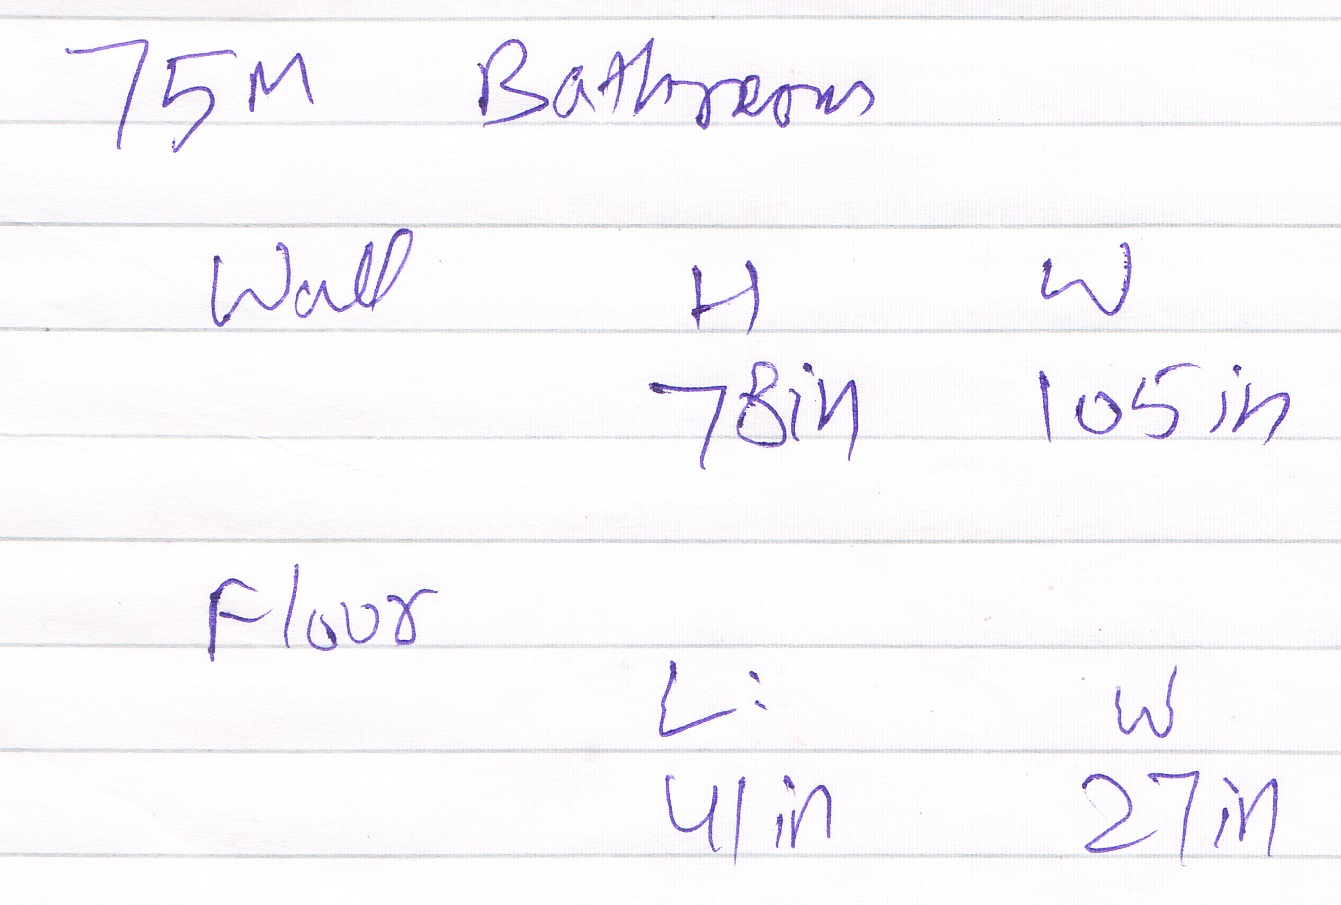 75M Bathroom
Wall H W
78in 105in
Floor
L: W
41in 27in